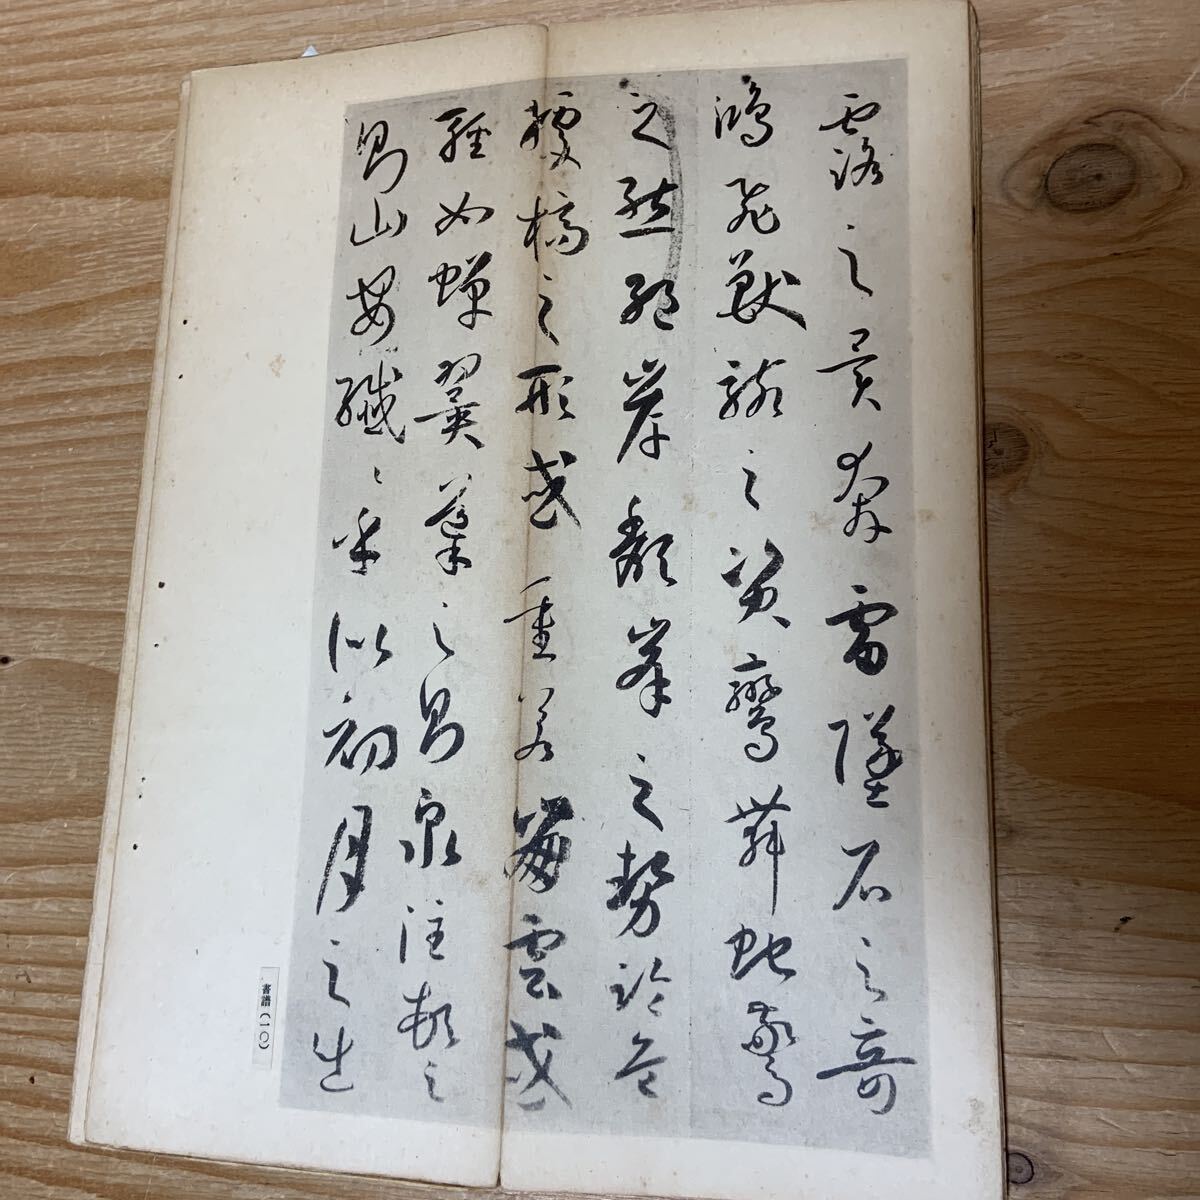 露之異奔雷墜石之奇
鴻飛獸駭之資鸞舞蛇驚
之態絕岸頹峯之勢臨危
據槁之形或重若崩雲或
輕如蟬翼導之則泉注頓之
則山安纖〻乎似初月之出
書譜(一〇)